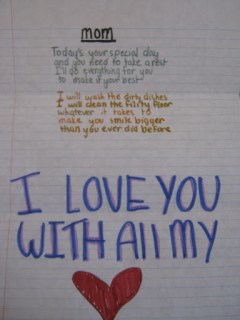 mom
Today's your special day
and you need to take a rest
I'll do everything for you
to make it your best
I will wash the dirty dishes
I will clean the filthy floor
whatever it takes to
make you smile bigger
than you ever did before
I LOVE YOU
WITH All MY